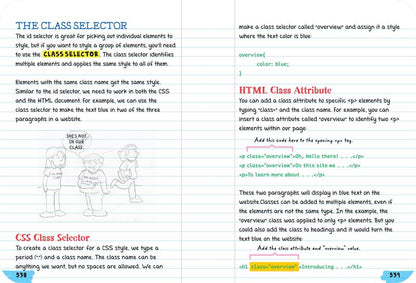 THE CLASS SELECTOR
The id selector is great for picking out individual elements to
style, but if you want to style a group of elements, you'll need
to use the CLASS SELECTOR. The class selector identifies
multiple elements and applies the same style to all of them.
Elements with the same class name get the same style.
Similar to the id selector, we need to work in both the CSS
and the HTML document. For example, we can use the
class selector to make the text blue in two of the three
paragraphs in a website.
SHE'S NOT
IN OUR
CLASS.
CSS Class Selector
To create a class selector for a CSS style, we type a
period (".") and a class name. The class name can be
anything we want, but no spaces are allowed. We can
538
make a class selector called "overview" and assign it a style
where the text color is blue:
.overview{
color: blue;
}
HTML Class Attribute
You can add a class attribute to specific <p> elements by
typing "class=" and the class name. For example, you can
insert a class attribute called "overview" to identify two <p>
elements within our page:
Add this code to the opening <p> tag.
<p class="overview">Oh, Hello there! . . .</p>
<p class="overview">On this site me . . .</p>
<p>To learn more about . . .</p>
These two paragraphs will display in blue text on the
website. Classes can be added to multiple elements, even if
the elements are not the same type. In the example, the
"overview" class was applied to only <p> elements. But you
could also add the class to headings and it would turn the
text blue on the website:
Add the class attribute and "overview" value.
<h1 class="overview">Introducing . . .</h1>
539